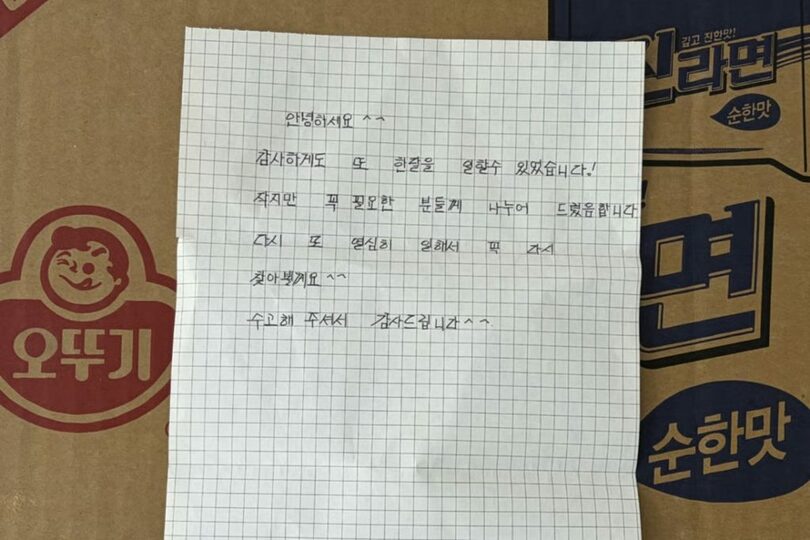 안녕하세요 ^^
감사하게도 또 한달을 일할수 있었습니다!
작지만 꼭 필요한 분들께 나누어 드렸음합니다
다시 또 열심히 일해서 꼭 다시
찾아뵐게요 ^^
수고해 주셔서 감사드립니다 ^^
오뚜기
깊고 진한맛!
진라면
순한맛
면
순한맛